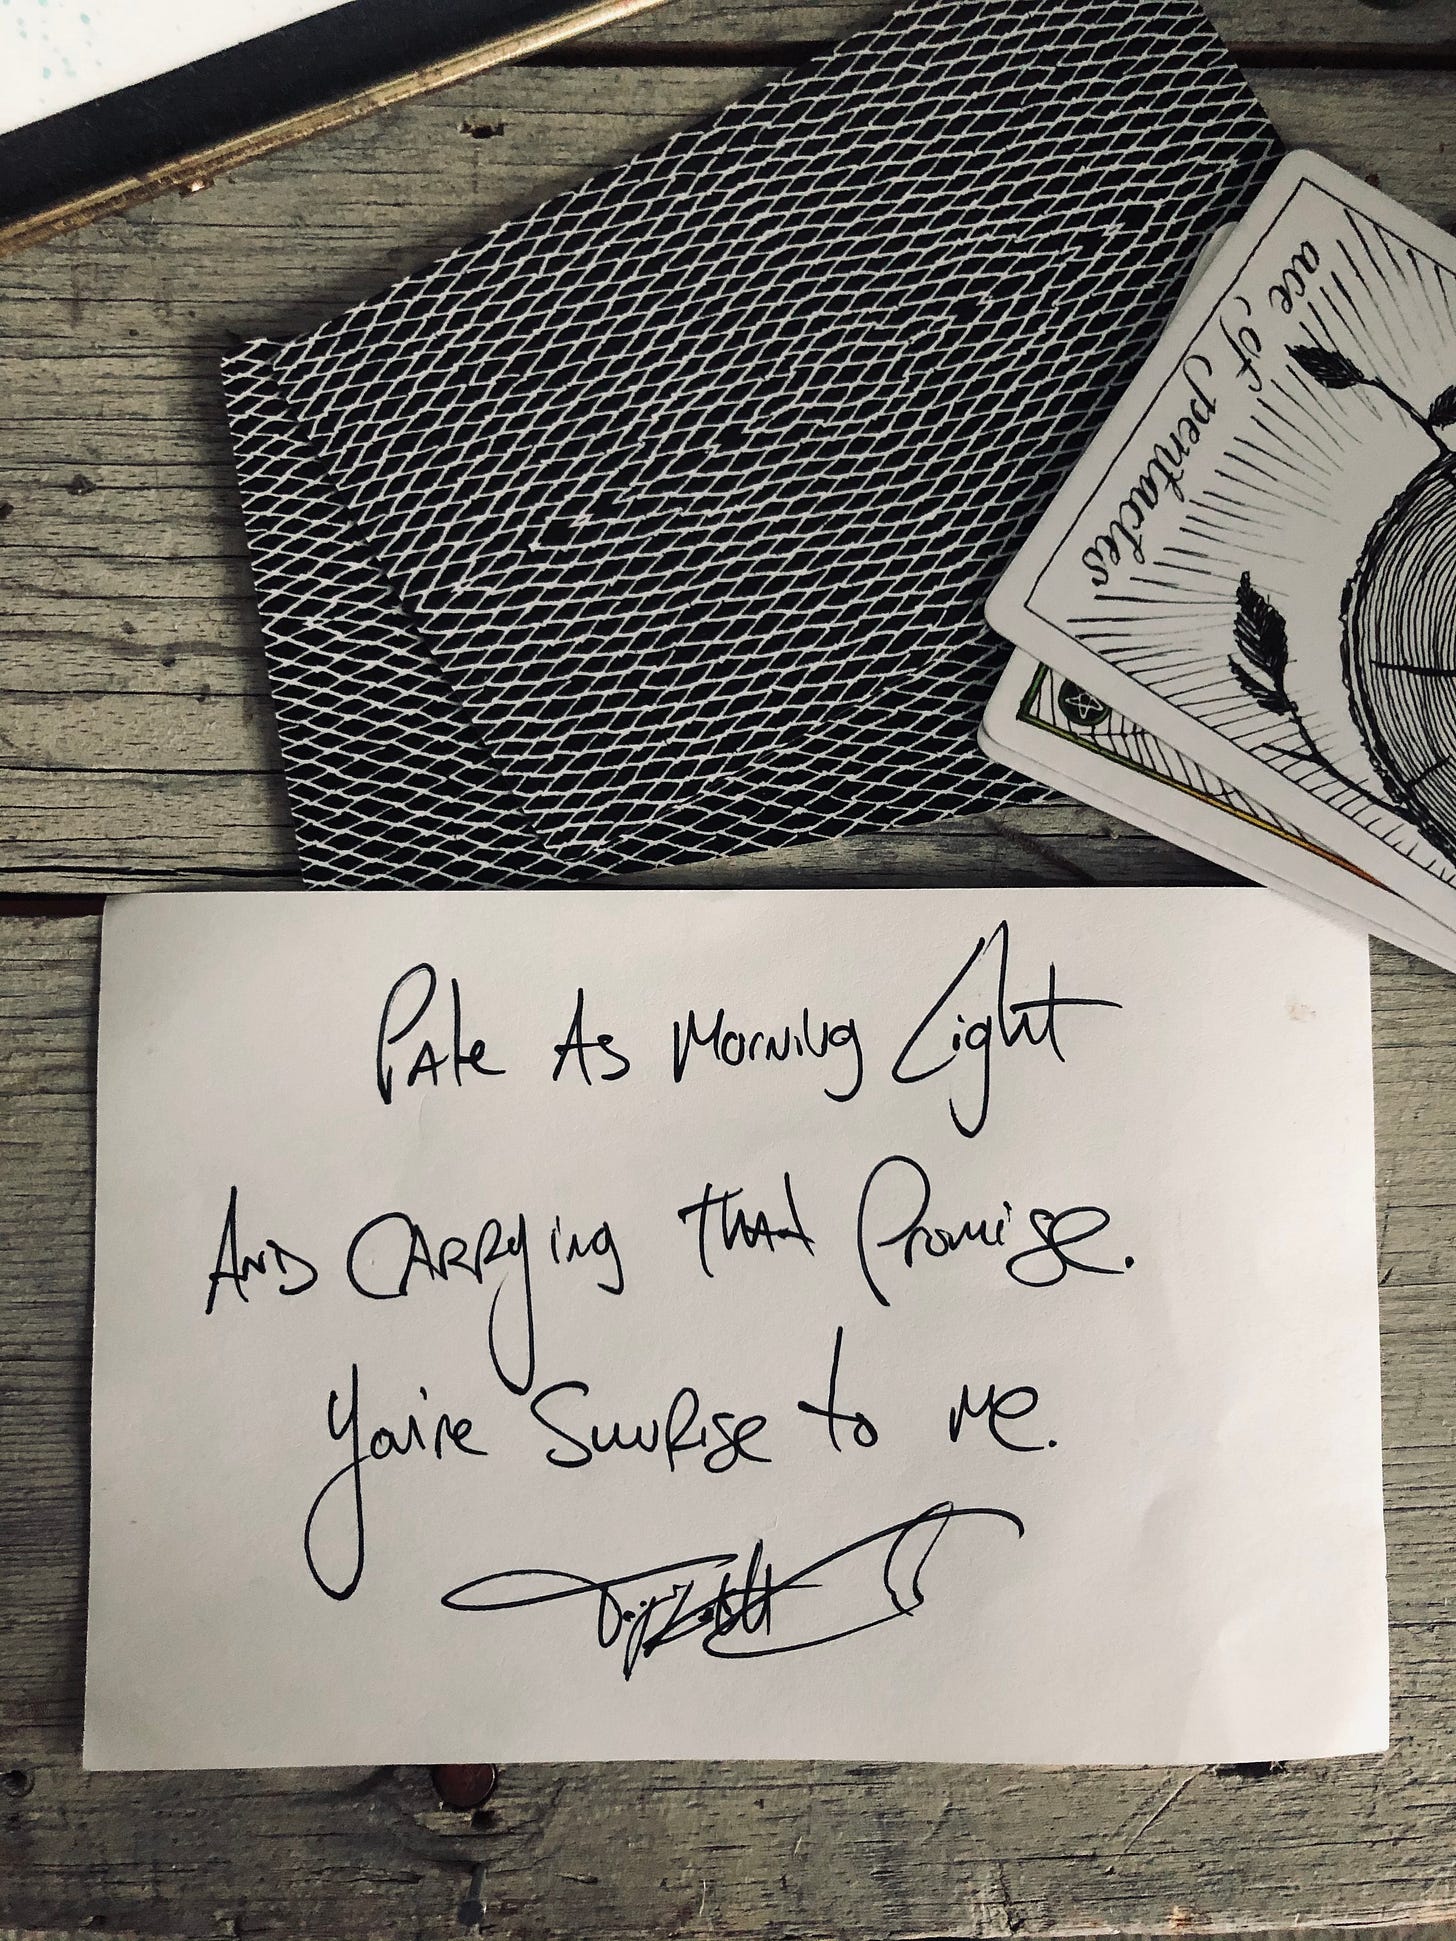 ace of pentacles
Pale As Morning Light
And Carrying That Promise.
You're Sunrise to me.